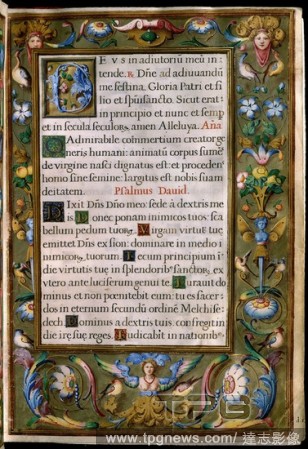 DEVS in adiutoriũ meũ in
tende. Dñe ad adiuuandũ
me festina. Gloria Patri et fi
lio et spũi sancto. Sicut erat
in principio et nunc et semp
et in secula seculoꝝ, amen Alleluya. Añā
O Admirabile commertium creator ge
neris humani: animatũ corpus sumẽs
de virgine nasci dignatus est: et proceden
homo sine semine: largitus est nobis suam
deitatem. Psalmus Dauid.
Dixit Dñs Dño meo: sede à dextris me
is. Donec ponam inimicos tuos: sca
bellum pedum tuoꝝ. Virgam virtutẽ tuę
emittet Dñs ex sion: dominare in medio i
nimicoꝝ tuorum. Tecum principium ĩ
die virtutis tuę in splendoribꝰ sanctoꝝ: ex
vtero ante luciferum genui te. Iurauit do
minus et non pœnitebit eum: tu es sacer
dos in eternum secundũ ordinẽ Melchise
dech. Dominus a dextris tuis: confregit in
die irę suę reges. Iudicabit in nationibꝰ
TPG
www.tpgnews.com/ 達志影像